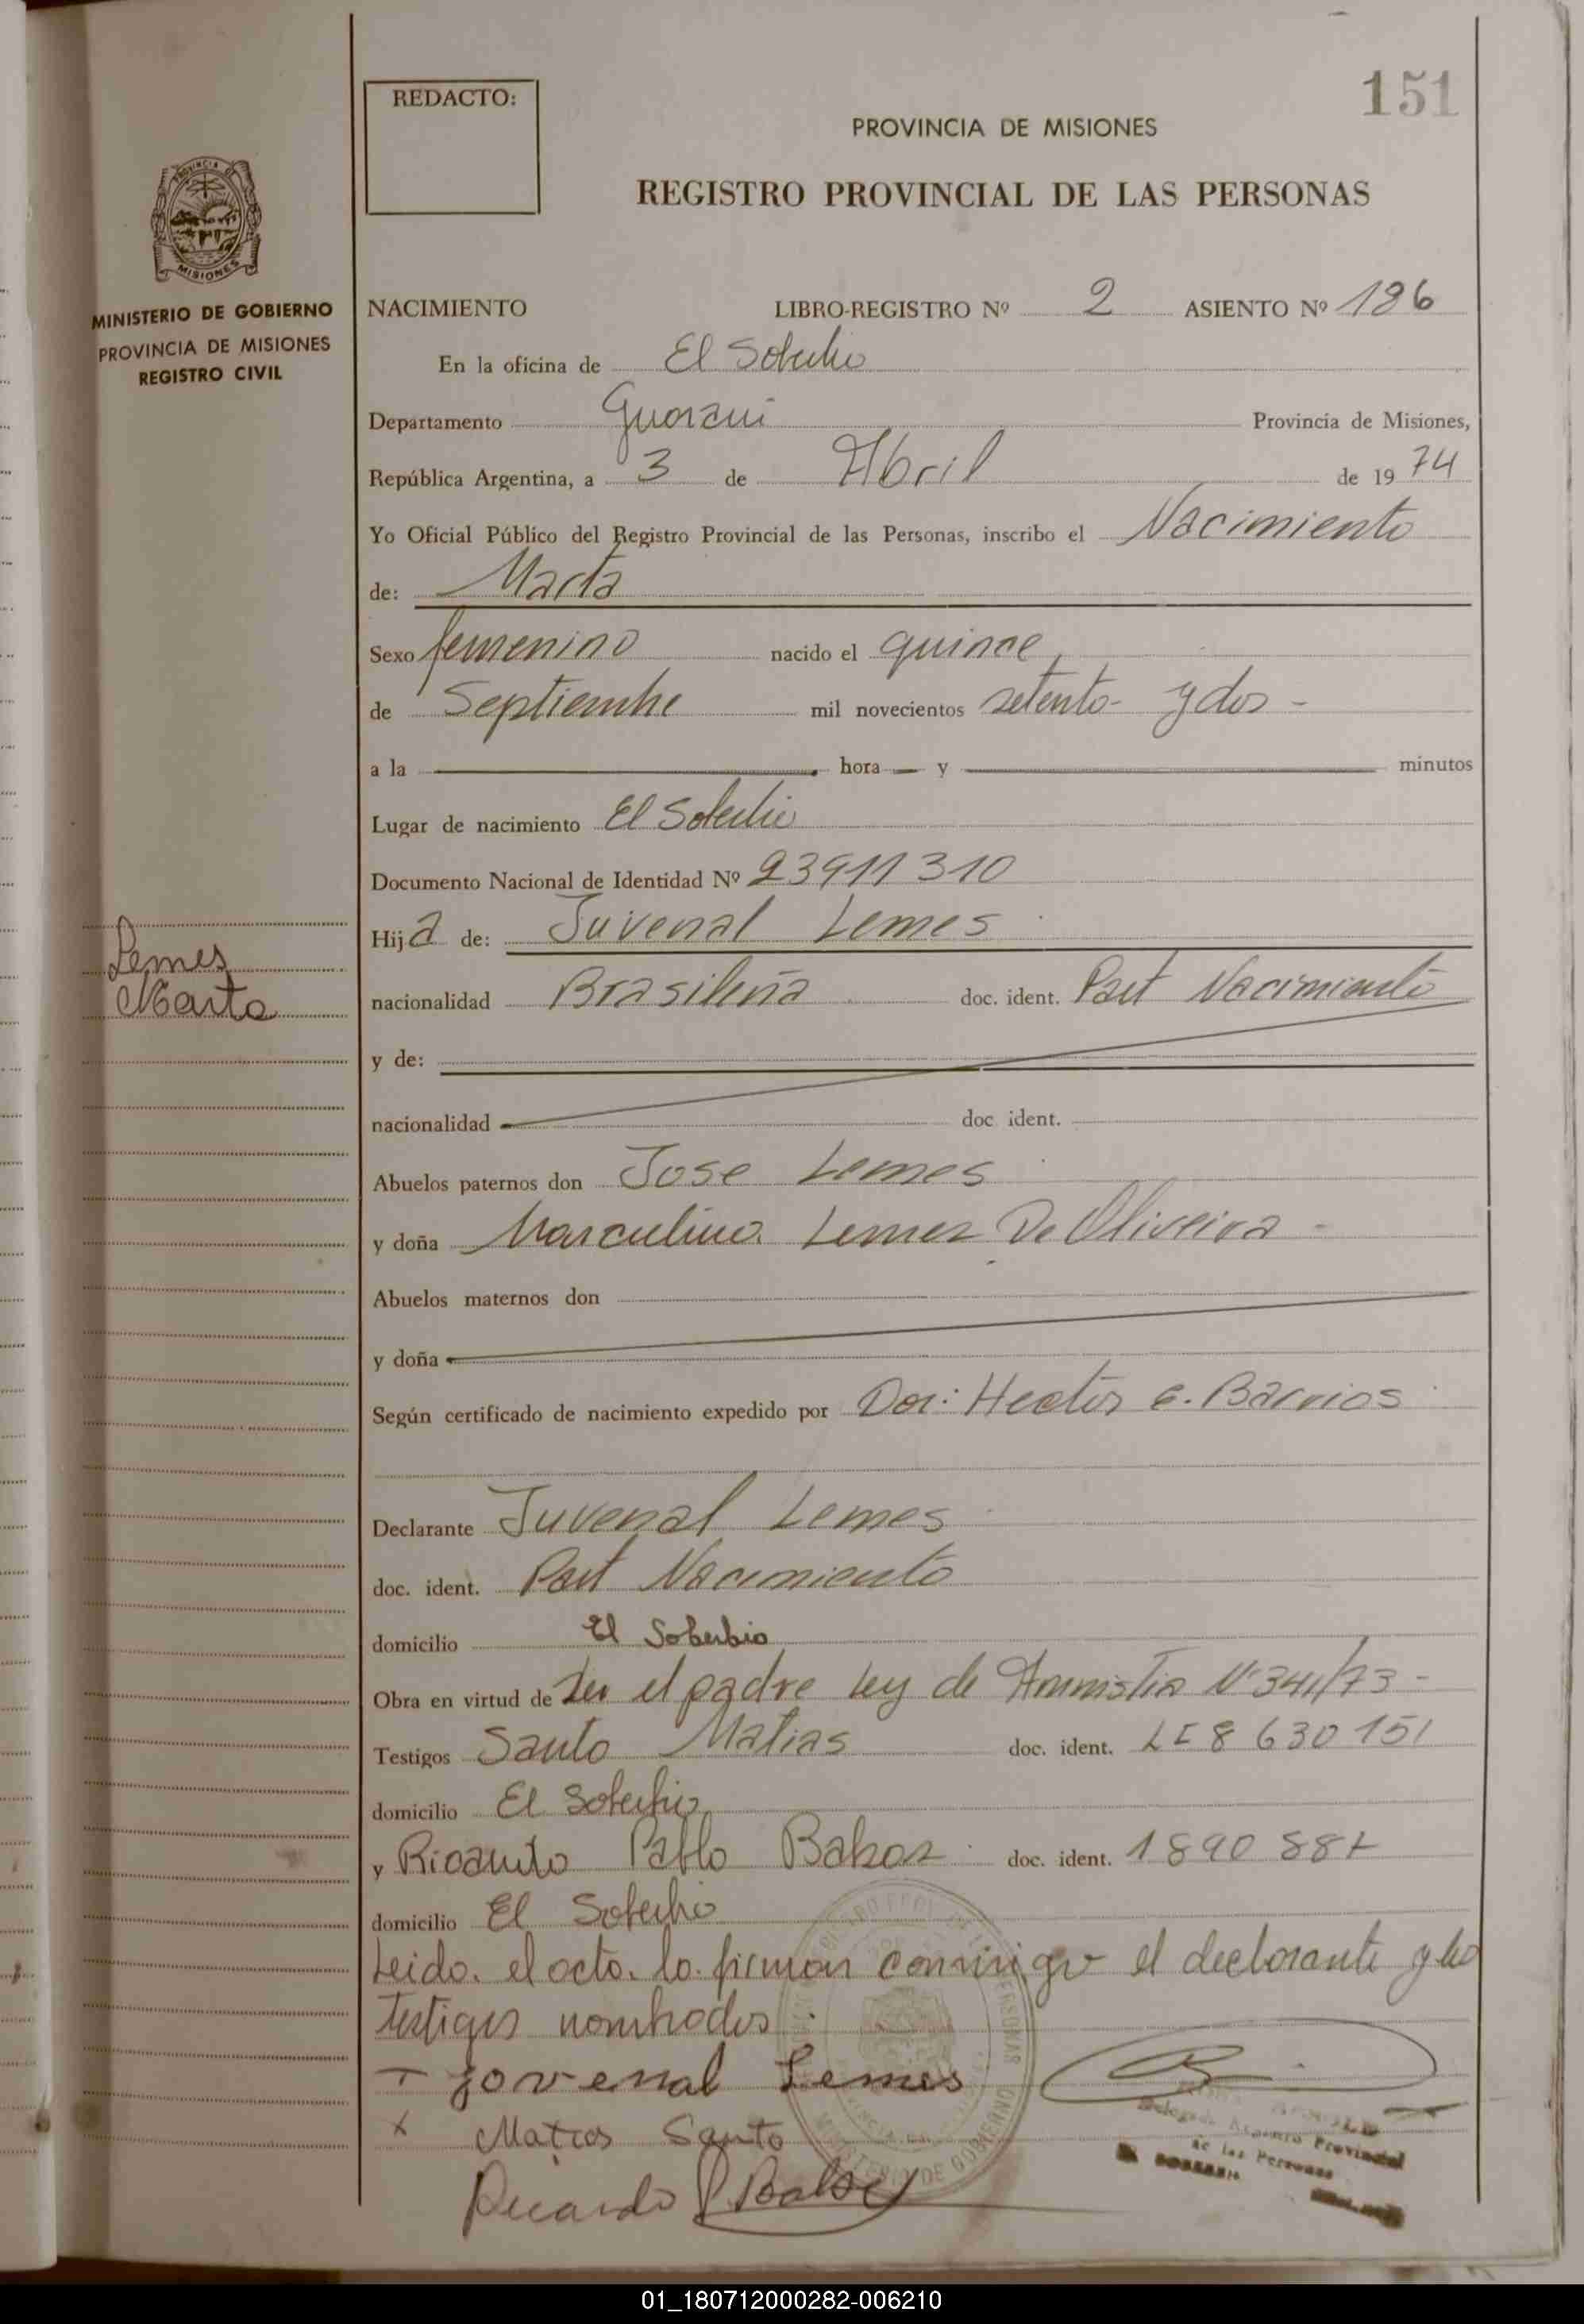 151
REDACTO:
PROVINCIA DE MISIONES
REGISTRO PROVINCIAL DE LAS PERSONAS
PROVINCIA DE
MISIONES
MINISTERIO DE GOBIERNO
PROVINCIA DE MISIONES
REGISTRO CIVIL
NACIMIENTO LIBRO-REGISTRO Nº 2 ASIENTO Nº 186
En la oficina de El Soberbio
Departamento Guarani Provincia de Misiones,
República Argentina, a 3 de Abril de 1974
Yo Oficial Público del Registro Provincial de las Personas, inscribo el Nacimiento
de: Marta
Sexo femenino nacido el quince
de Septiembre mil novecientos setenta y dos -
a la hora y minutos
Lugar de nacimiento El Soberbio
Documento Nacional de Identidad Nº 23911310
Hija de: Juvenal Lemes
Lemes
Marta
nacionalidad Brasileña doc. ident. Part Nacimiento
y de:
nacionalidad doc ident.
Abuelos paternos don Jose Lemes
y doña Marculina Lemes De Oliveira -
Abuelos maternos don
y doña
Según certificado de nacimiento expedido por Dor: Hector E. Barrios
Declarante Juvenal Lemes
doc. ident. Part Nacimiento
domicilio El Soberbio
Obra en virtud de Ser el padre Ley de Amnistia Nº 341/73 -
Testigos Santo Matias doc. ident. LE 8 630 151
domicilio El Soberbio
y Ricardo Pablo doc. ident. 1890 887
domicilio El Soberbio
Leido el acto lo firman conmigo el declarante y los
testigos nombrados
Jovenal Lemes
Matias Santo
Ricardo P
Delegado Registro Provincial
de las Personas
EL SOBERBIO
MINISTERIO DE GOBIERNO
01_180712000282-006210